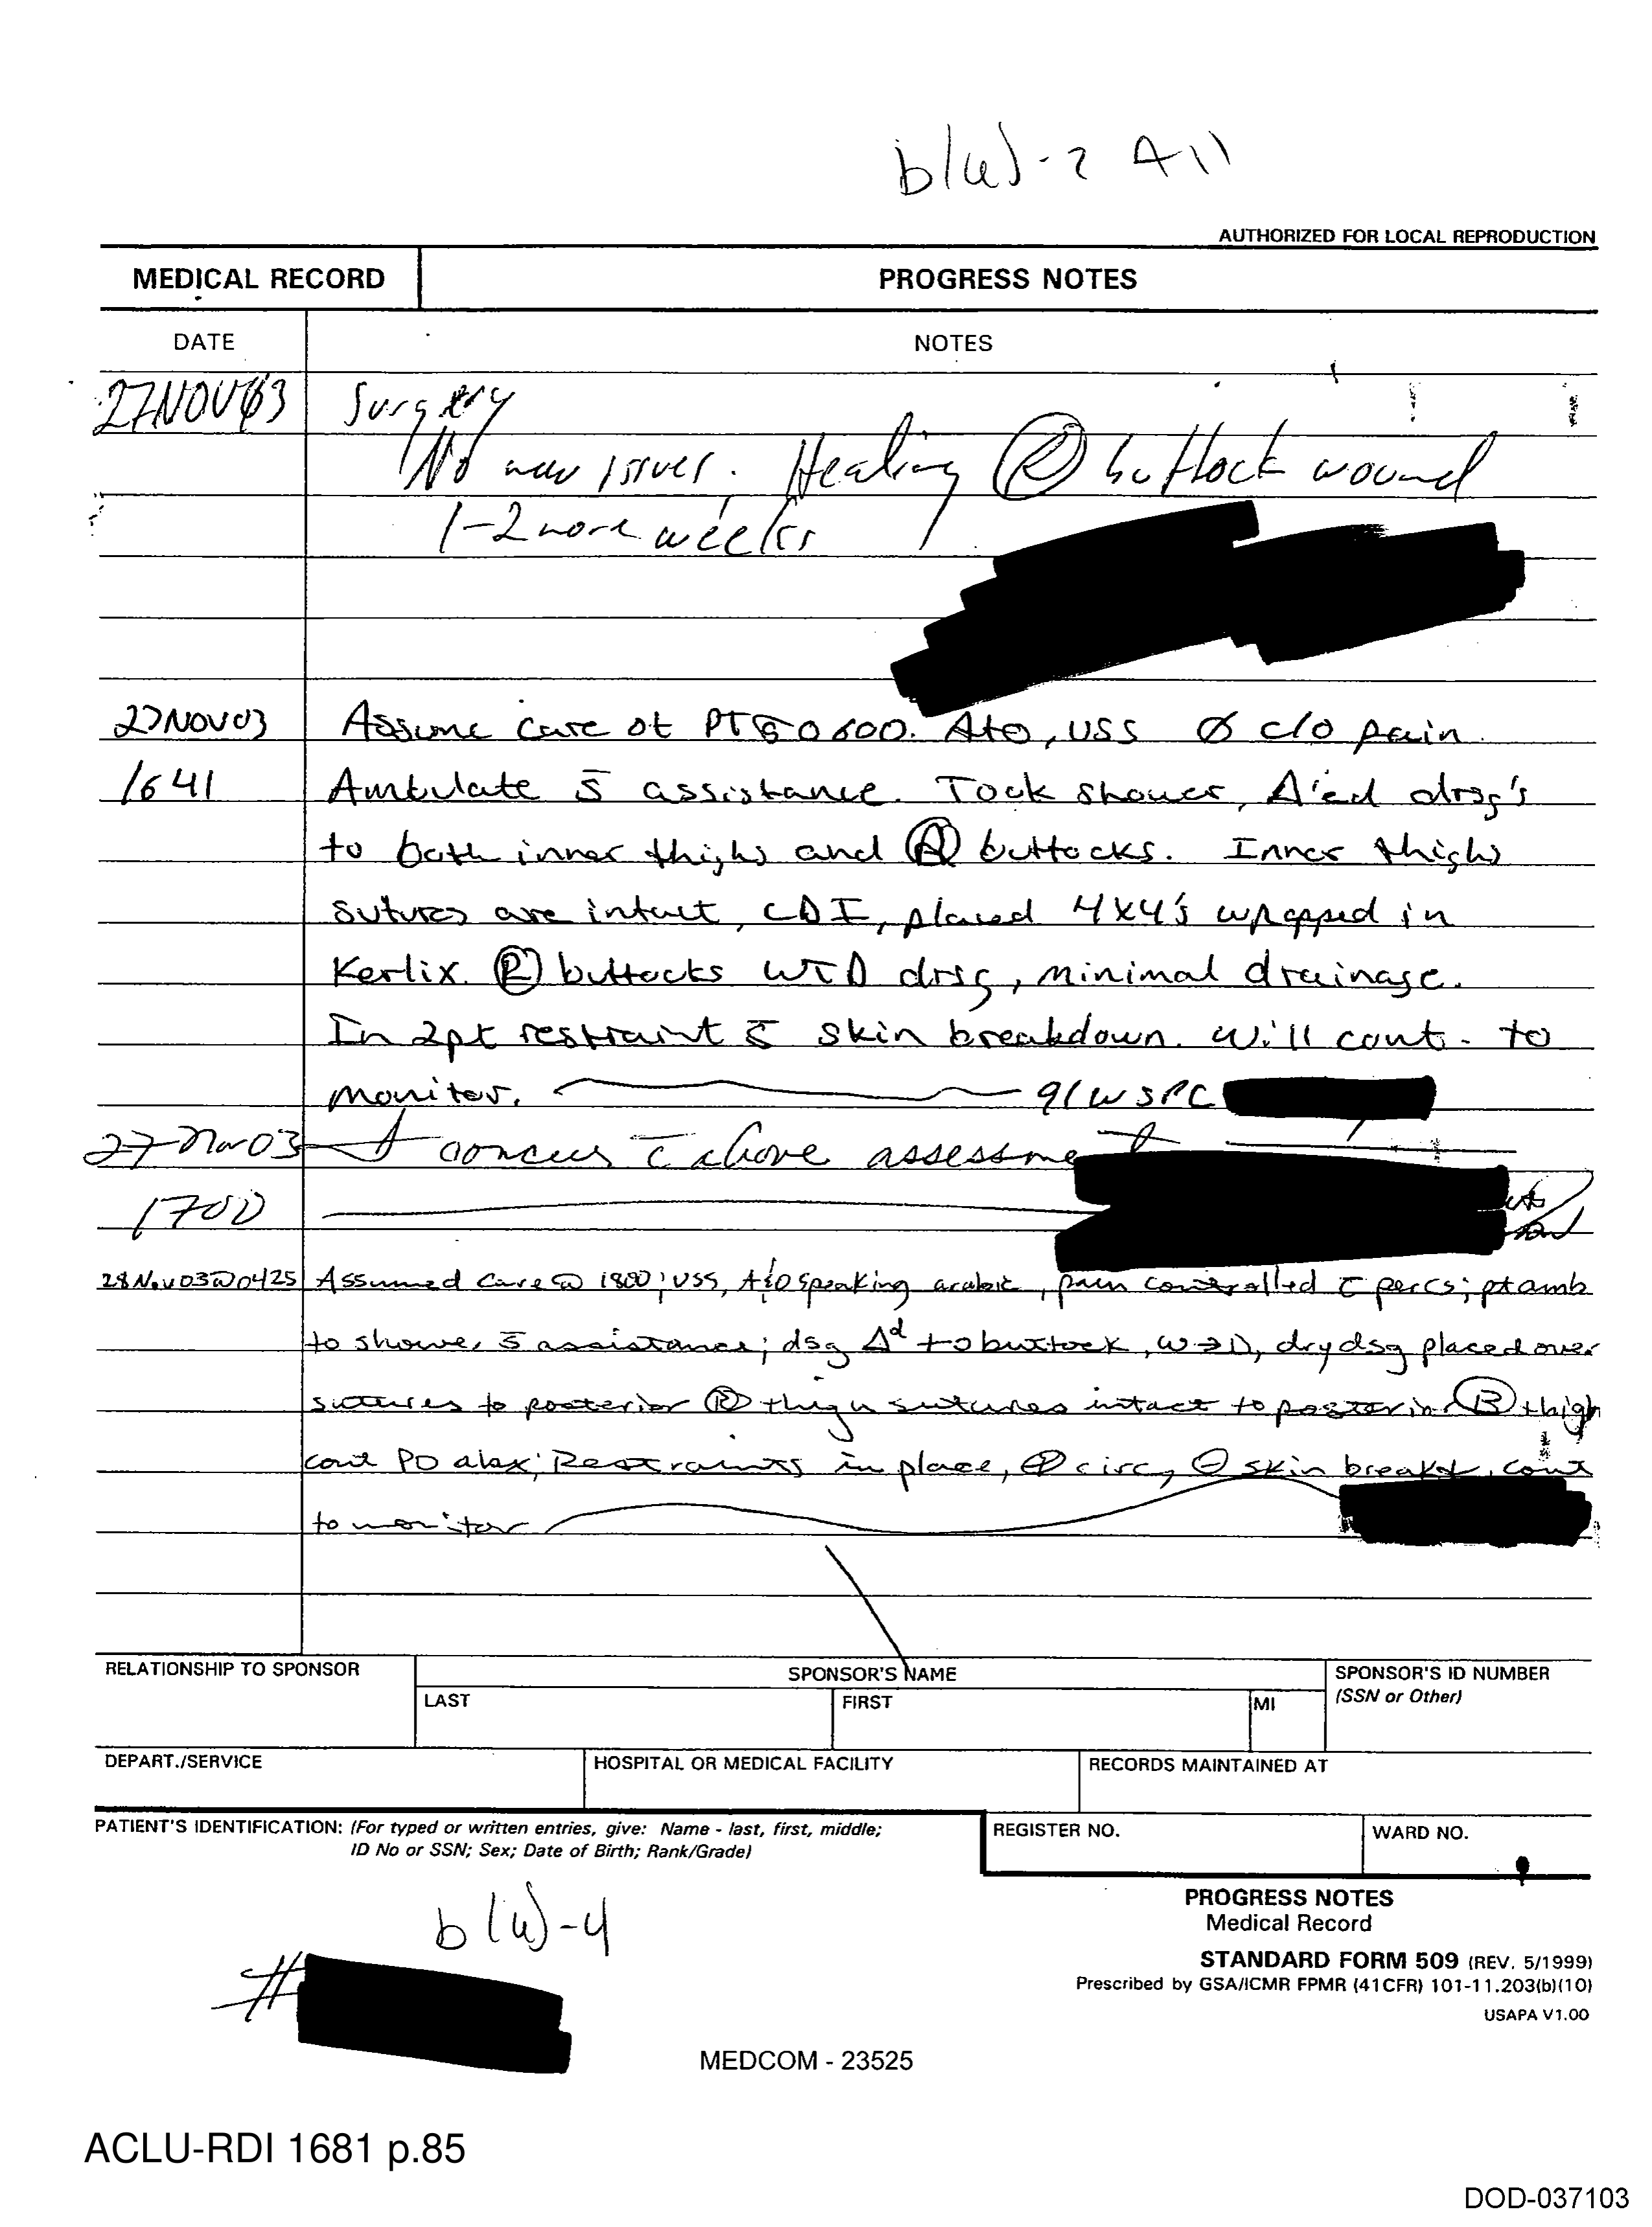 b(6)-2 All
AUTHORIZED FOR LOCAL REPRODUCTION
MEDICAL RECORD PROGRESS NOTES
DATE NOTES
27NOV03 Surgery
No new issues. Healing Ⓡ buttock wound
1-2 more weeks
27NOV03 Assume care of PT @ 0600. A+O, VSS Ø c/o pain.
1641 Ambulate s̄ assistance. Took shower, Δ'ed drsg's
to both inner thighs and Ⓡ buttocks. Inner thighs
sutures are intact, CDI, placed 4x4's wrapped in
Kerlix. Ⓡ buttocks WTD drsg, minimal drainage.
In 2pt restraint s̄ skin breakdown. Will cont. to
monitor. 91W SPC
27 Nov 03 I concur c̄ above assessment
1700
28Nov03@0425 Assumed care @ 1800; VSS, A&O speaking arabic, pain controlled c̄ percs; pt amb
to shower s̄ assistance; dsg Δd to buttock, W→D, dry dsg placed over
sutures to posterior Ⓡ thigh sutures intact to posterior Ⓑ thigh
cont PO abx; Restraints in place, ⊕ circ, ⊖ skin breakd, cont
to monitor
RELATIONSHIP TO SPONSOR SPONSOR'S NAME SPONSOR'S ID NUMBER
LAST FIRST MI (SSN or Other)
DEPART./SERVICE HOSPITAL OR MEDICAL FACILITY RECORDS MAINTAINED AT
PATIENT'S IDENTIFICATION: (For typed or written entries, give: Name - last, first, middle;
ID No or SSN; Sex; Date of Birth; Rank/Grade)
REGISTER NO. WARD NO.
b(6)-4
#
PROGRESS NOTES
Medical Record
STANDARD FORM 509 (REV. 5/1999)
Prescribed by GSA/ICMR FPMR (41CFR) 101-11.203(b)(10)
USAPA V1.00
MEDCOM - 23525
ACLU-RDI 1681 p.85
DOD-037103